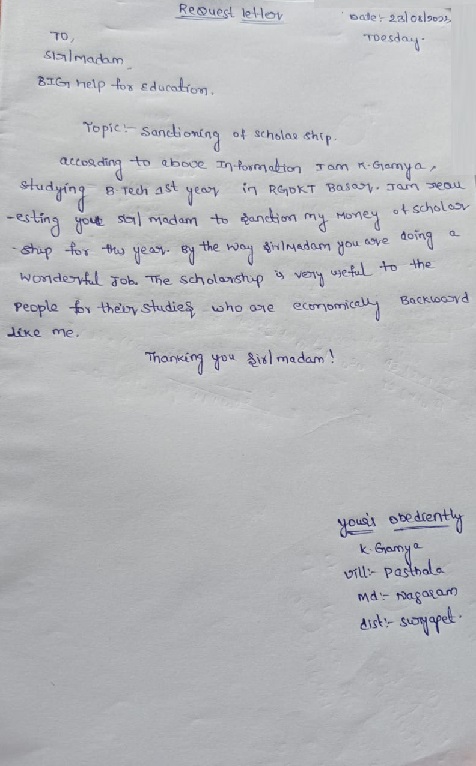 Request letter
Date:- 22/08/2023
Tuesday.
To,
Sir/madam,
BIG Help for Education.
Topic:- Sanctioning of scholar ship.
according to above Information I am K. Gamya,
studying B.Tech 1st year in RGUKT Basar. I am requ
-esting your sir/madam to sanction my money of scholar
-ship for this year. By the way sir/madam you are doing a
wonderful Job. The scholarship is very useful to the
people for their studies who are economically Backward
like me.
Thanking you sir/madam!
your's obediently
K. Gamya
vill:- Pasthala
Md:- Nagaram
dist:- suryapet.